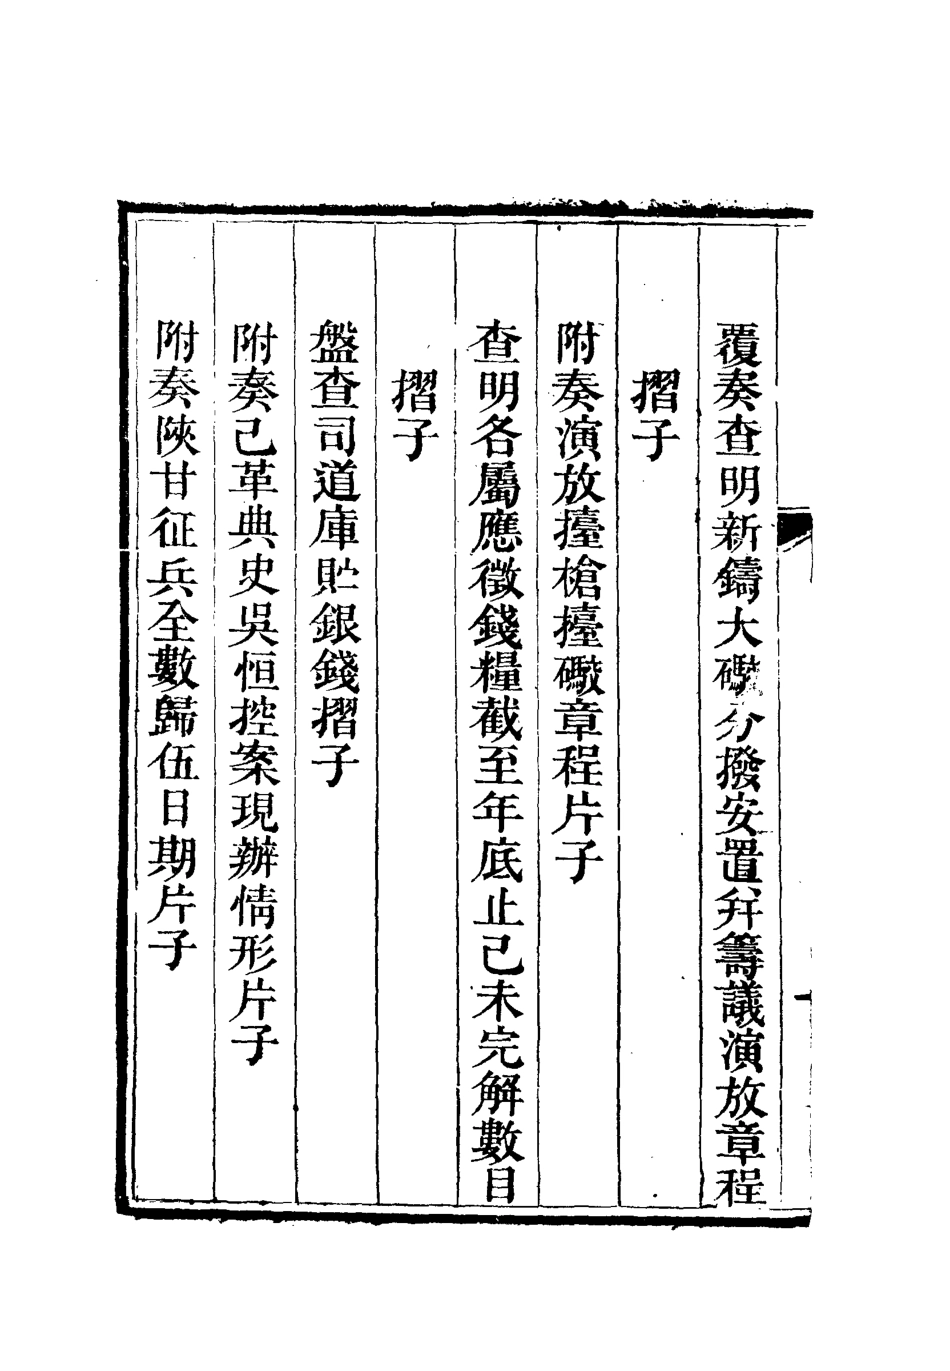 覆奏查明新鑄大礮分撥安置并籌議演放章程
摺子
附奏演放擡槍擡礮章程片子
查明各屬應徵錢糧截至年底止已未完解數目
摺子
盤查司道庫貯銀錢摺子
附奏已革典史吳恒控案現辦情形片子
附奏陝甘征兵全數歸伍日期片子